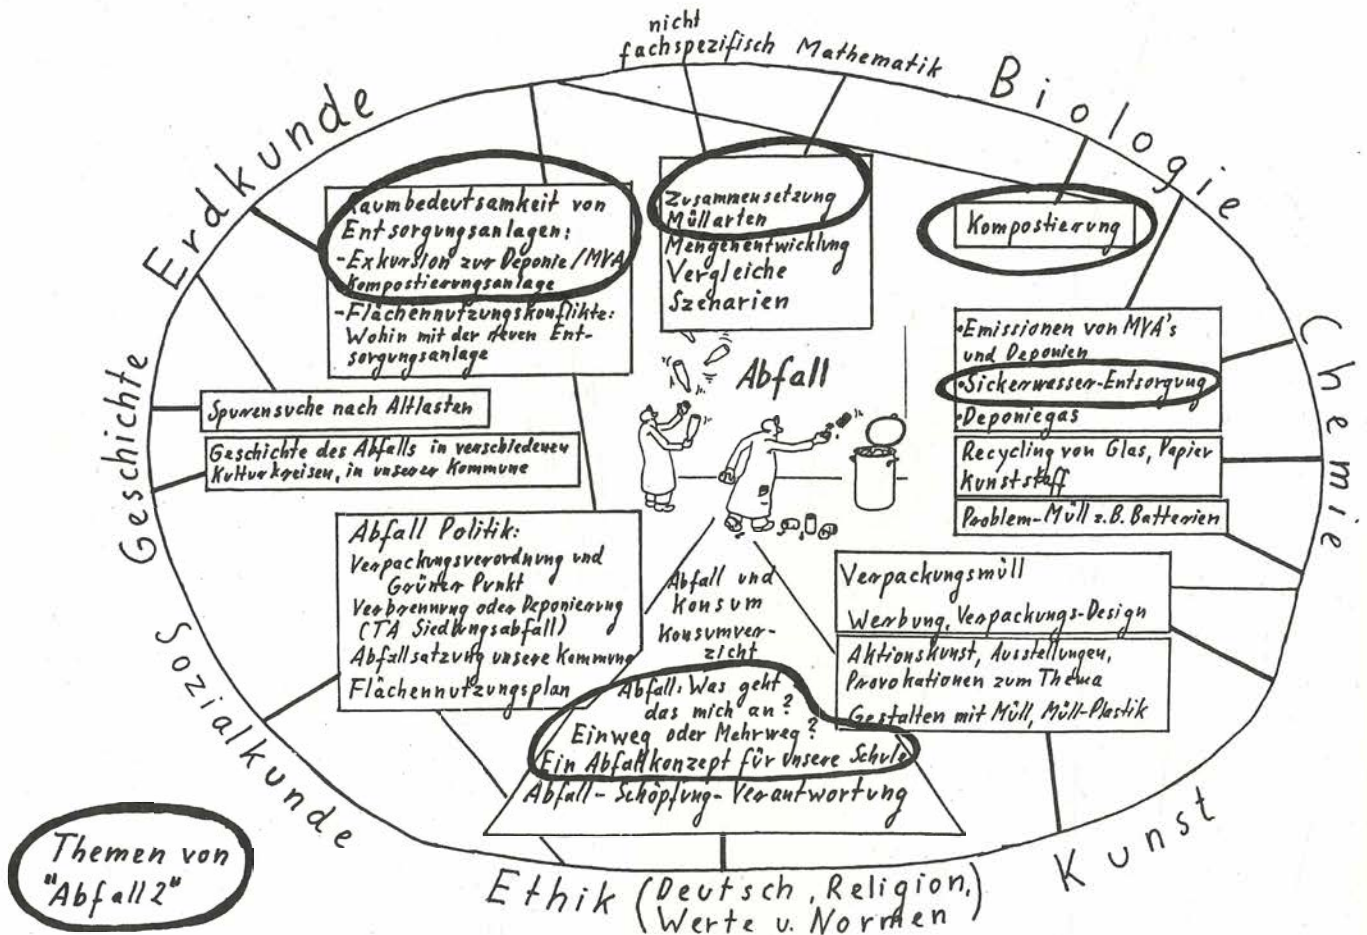 nicht
fachspezifisch
Mathematik
Biologie
Erdkunde
Raumbedeutsamkeit von
Entsorgungsanlagen:
-Exkursion zur Deponie/MVA
Kompostierungsanlage
-Flächennutzungskonflikte:
Wohin mit der neuen Ent-
sorgungsanlage
Zusammensetzung
Müllarten
Mengenentwicklung
Vergleiche
Szenarien
Kompostierung
Chemie
•Emissionen von MVA's
und Deponien
•Sickerwasser-Entsorgung
•Deponiegas
Recycling von Glas, Papier
Kunststoff
Problem-Müll z.B. Batterien
Abfall
Geschichte
Spurensuche nach Altlasten
Geschichte des Abfalls in verschiedenen
Kulturkreisen, in unserer Kommune
Abfall Politik:
Verpackungsverordnung und
Grüner Punkt
Verbrennung oder Deponierung
(TA Siedlungsabfall)
Abfallsatzung unsere Kommune
Flächennutzungsplan
Abfall und
Konsum
Konsumver-
zicht
Abfall: Was geht
das mich an?
Einweg oder Mehrweg?
Ein Abfallkonzept für unsere Schule
Abfall-Schöpfung-Verantwortung
Verpackungsmüll
Werbung, Verpackungs-Design
Aktionskunst, Ausstellungen,
Provokationen zum Thema
Gestalten mit Müll, Müll-Plastik
Sozialkunde
Kunst
Ethik (Deutsch, Religion,
Werte u. Normen)
Themen von
"Abfall 2"